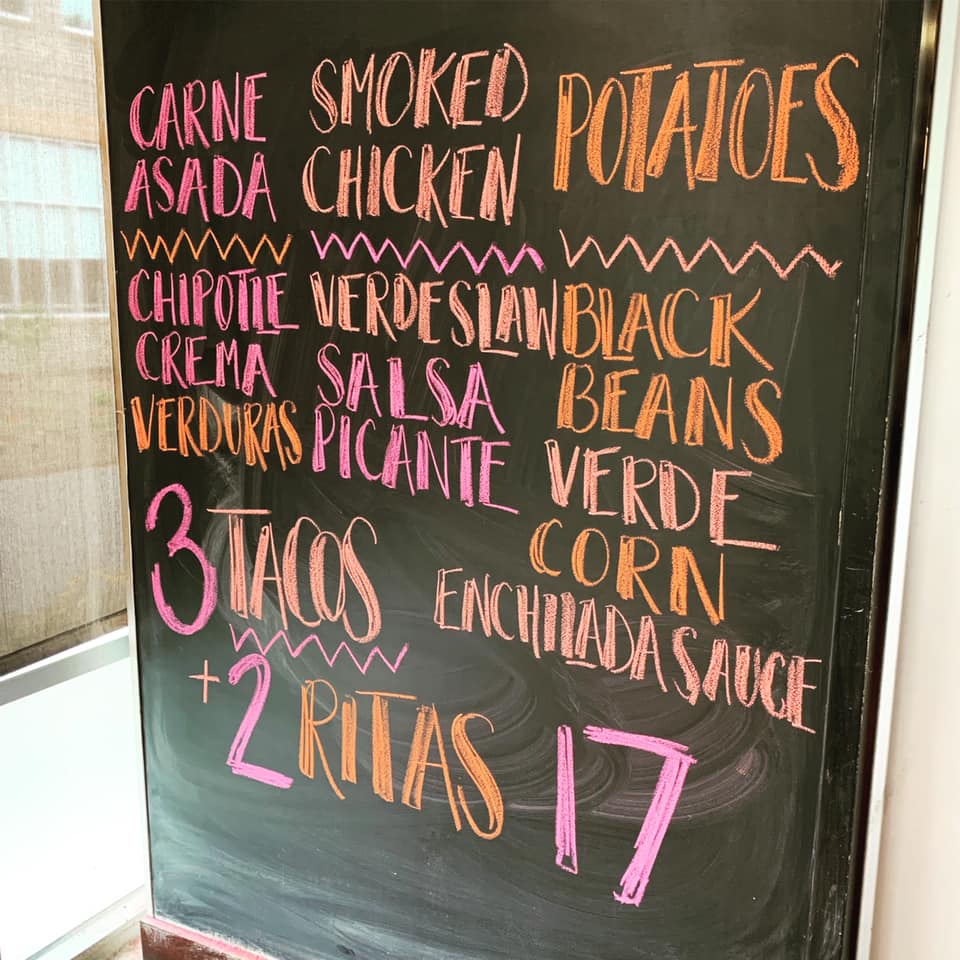 CARNE
ASADA
CHIPOTLE
CREMA
VERDURAS
SMOKED
CHICKEN
VERDE SLAW
SALSA
PICANTE
POTATOES
BLACK
BEANS
VERDE
CORN
ENCHILADA SAUCE
3 TACOS
+ 2 RITAS
17